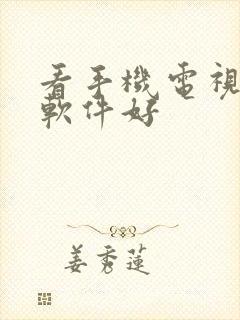 看手機電視
軟件好
姜秀蓮